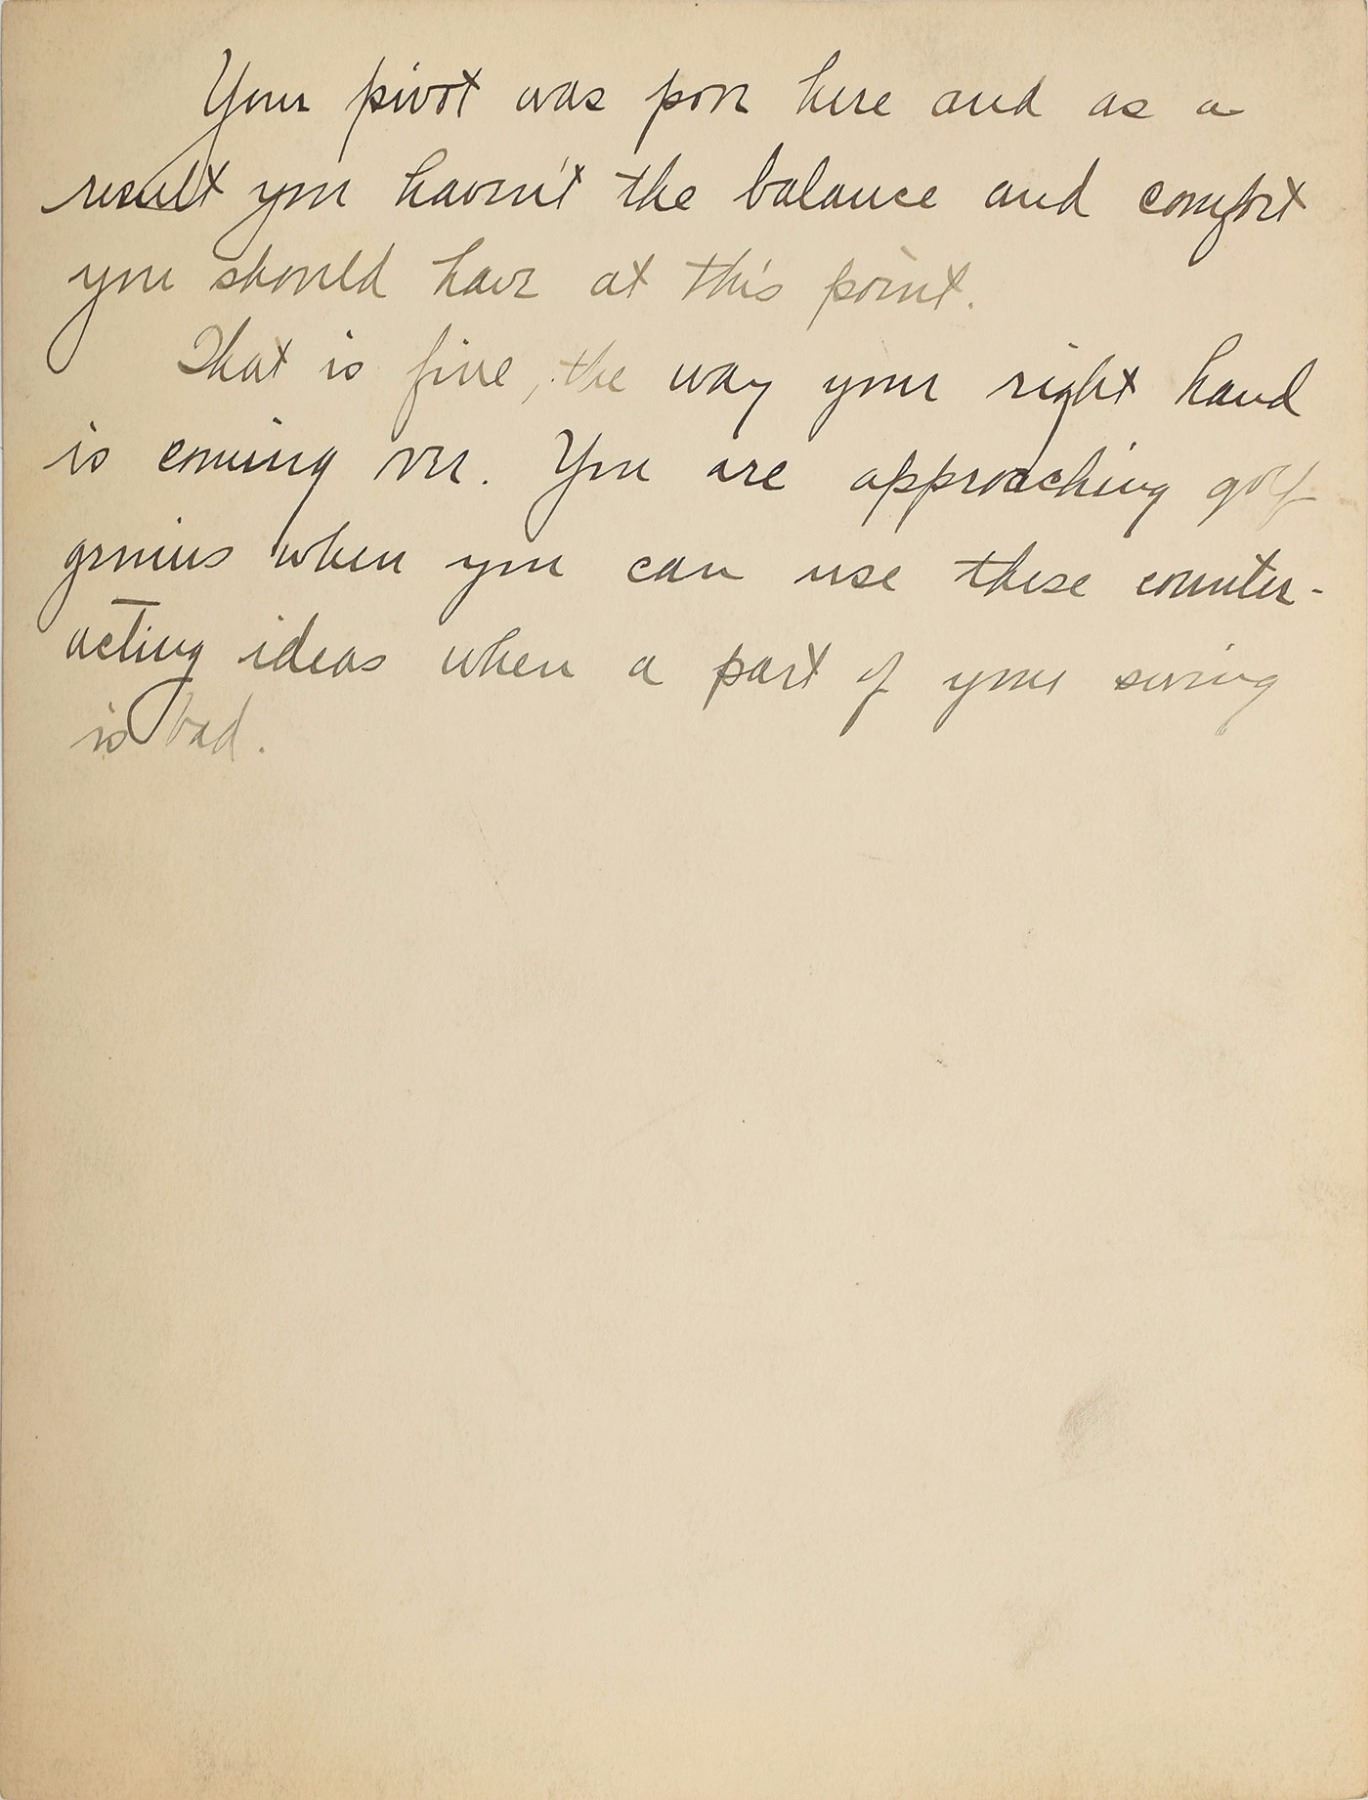 Your pivot was poor here and as a
result you haven't the balance and comfort
you should have at this point.
That is fine, the way your right hand
is coming over. You are approaching golf
genius when you can use these counter-
acting ideas when a part of your swing
is bad.